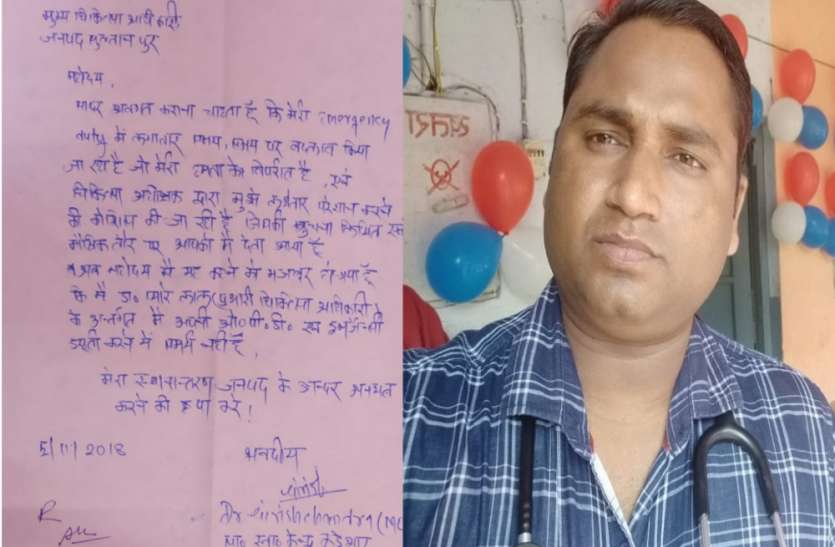 मुख्य चिकित्सा अधिकारी
जनपद सुल्तानपुर
महोदय,
सादर अवगत कराना चाहता हूँ कि मेरी Emergency
duty में लगातार समय, समय पर बदलाव किया
जा रहा है जो मेरी क्षमता के विपरीत है, एवं
चिकित्सा अधीक्षक द्वारा मुझे लगातार परेशान करने
की कोशिश की जा रही है जिसकी सूचना लिखित एवं
मौखिक तौर पर आपको मैं देता आया हूँ
अब महोदय मैं यह कहने को मजबूर हो गया हूँ
कि मैं डा० प्यारे लाल (प्रभारी चिकित्सा अधिकारी)
के अन्तर्गत में अपनी ओ०पी०डी० एवं इमर्जेन्सी
ड्यूटी करने में समर्थ नहीं हूँ,
मेरा स्थानान्तरण जनपद के अन्दर अन्यत्र
करने की कृपा करे!
5/11/2018 भवदीय
Dr Girish chandra (M
सा० स्वा० केन्द्र